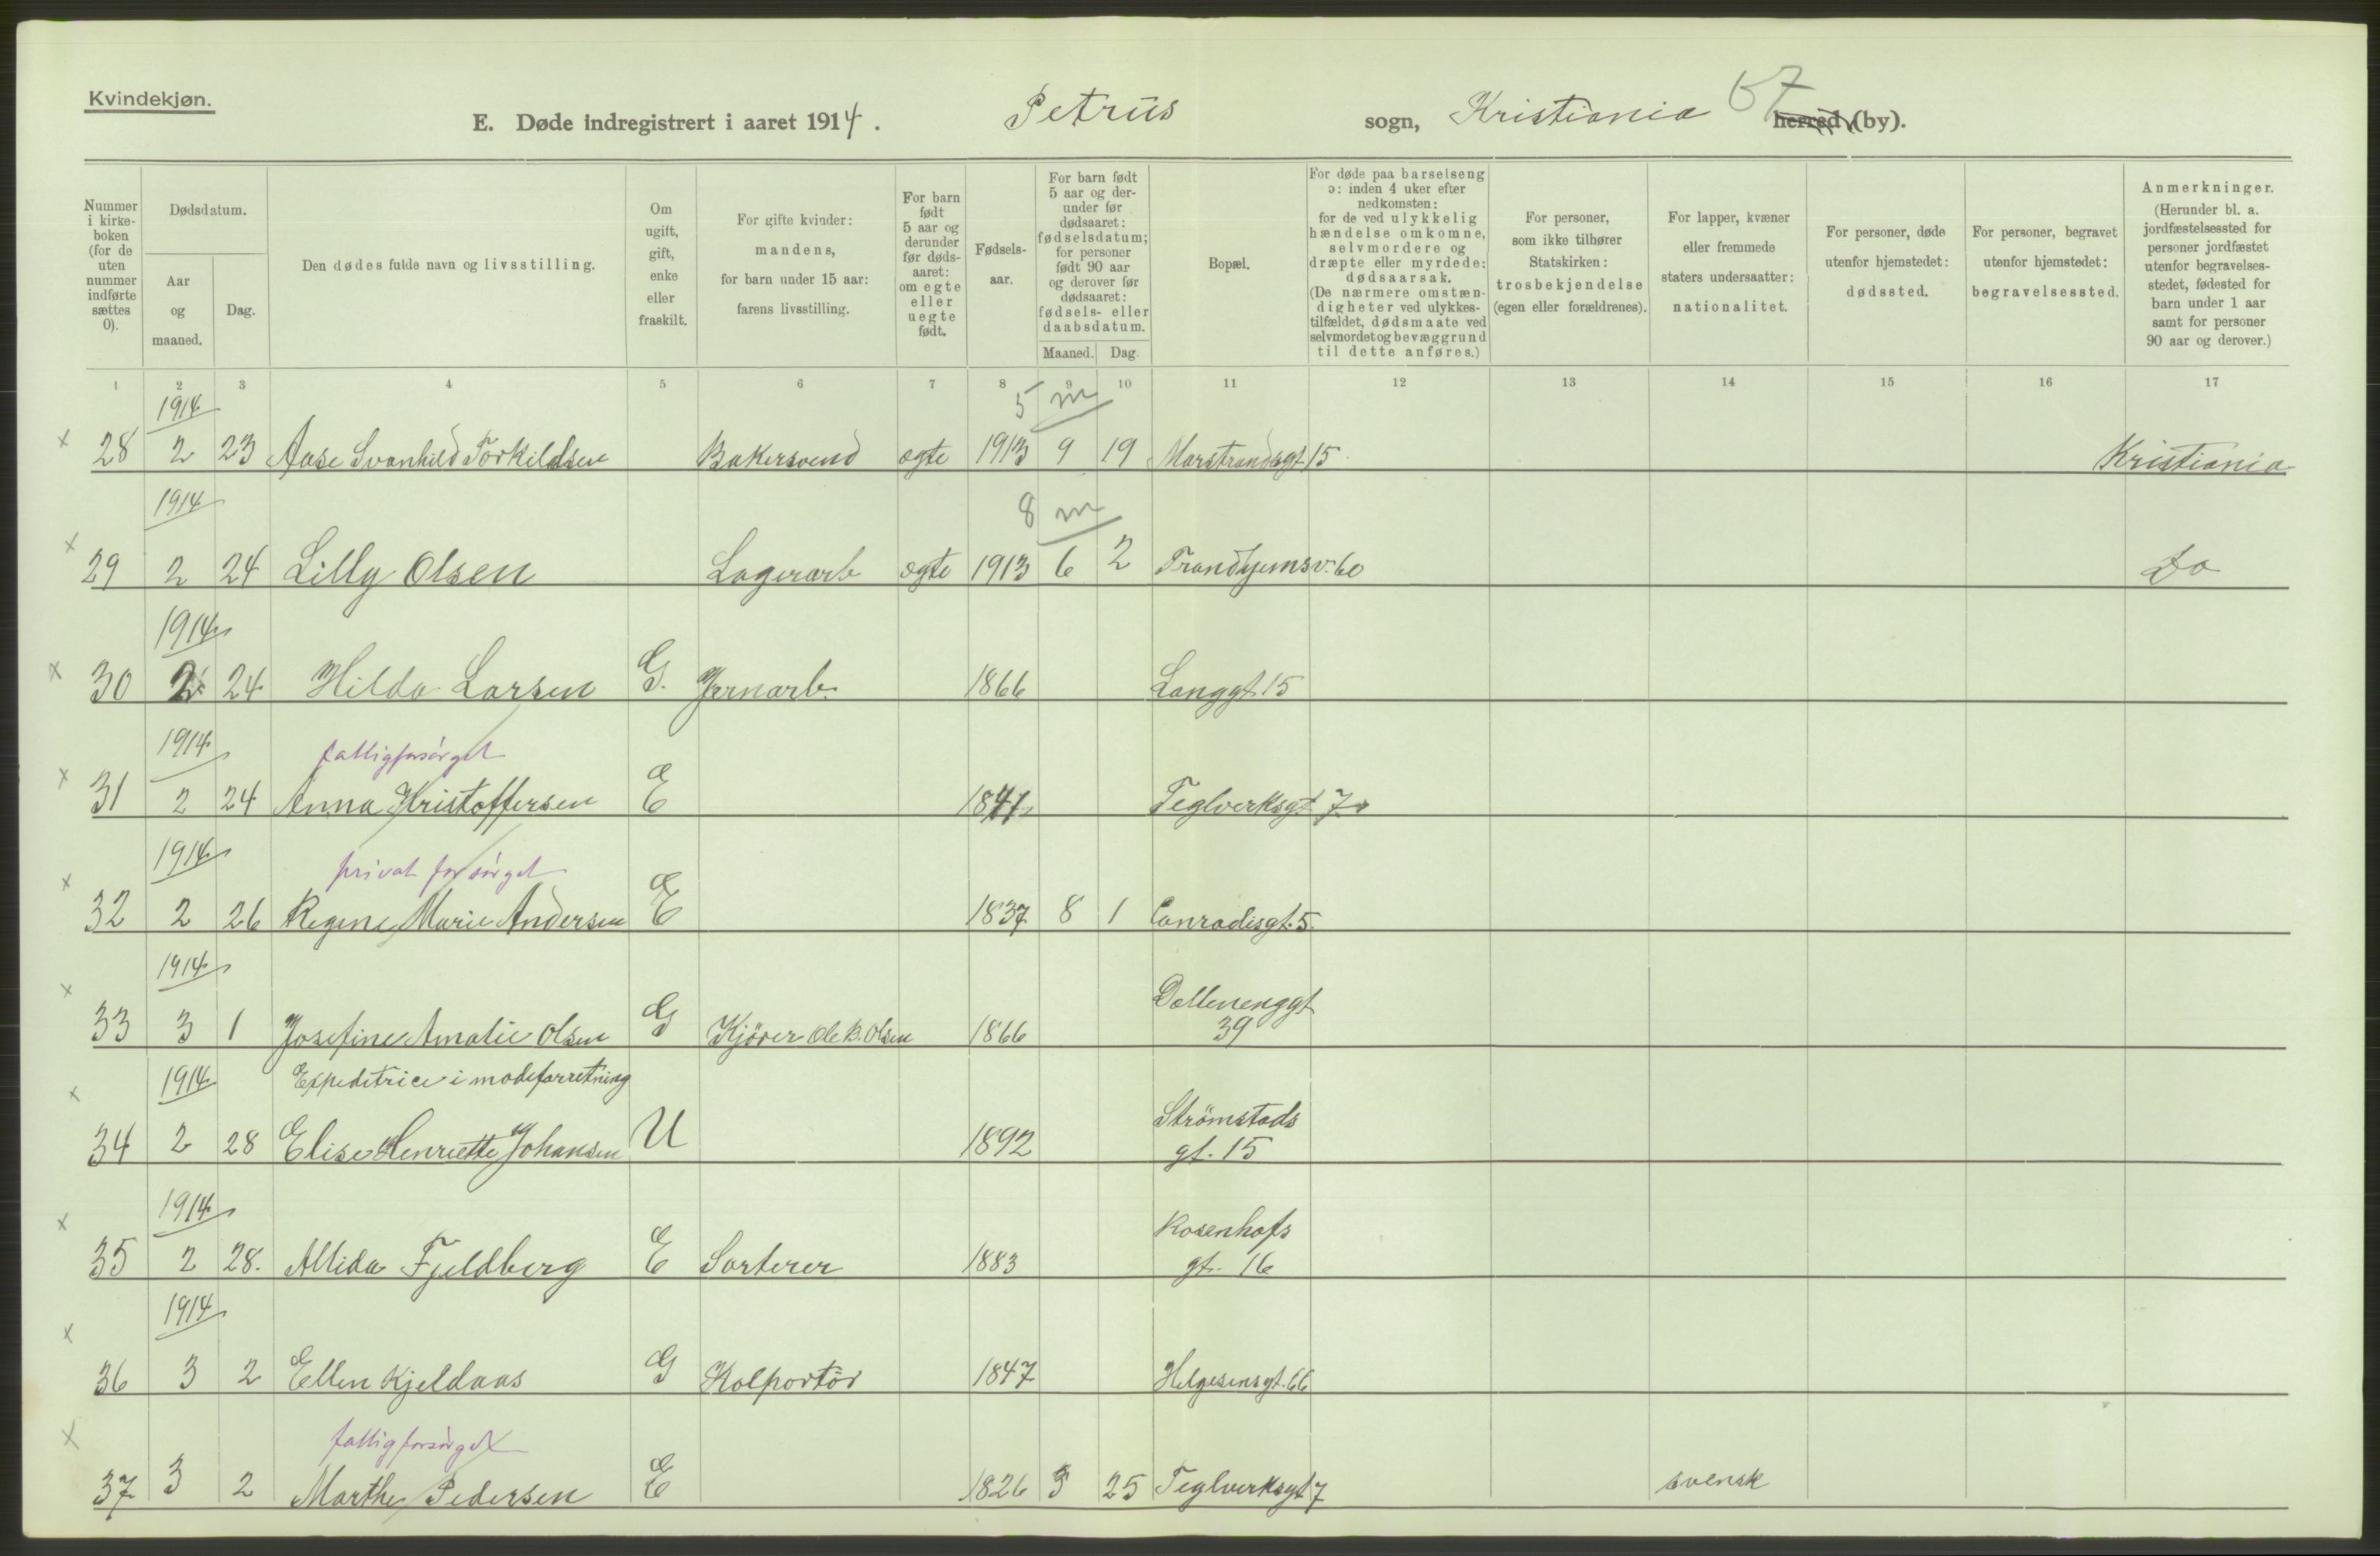 Kvindekjøn.
E. Døde indregistrert i aaret 1914. Petrus sogn, Kristiania herred (by).
57
Nummer i kirkeboken (for de uten nummer indførte sættes 0).
Dødsdatum.
Aar og maaned.
Dag.
Den dødes fulde navn og livsstilling.
Om ugift, gift, enke eller fraskilt.
For gifte kvinder: mandens, for barn under 15 aar: farens livsstilling.
For barn født 5 aar og derunder før dødsaaret: om egte eller uegte født.
Fødselsaar.
For barn født 5 aar og derunder før dødsaaret: fødselsdatum; for personer født 90 aar og derover før dødsaaret: fødsels- eller daabsdatum.
Maaned. Dag.
Bopæl.
For døde paa barselseng ɔ: inden 4 uker efter nedkomsten: for de ved ulykkelig hændelse omkomne, selvmordere og dræpte eller myrdede: dødsaarsak. (De nærmere omstændigheter ved ulykkestilfældet, dødsmaate ved selvmordet og bevæggrund til dette anføres.)
For personer, som ikke tilhører Statskirken: trosbekjendelse (egen eller forældrenes).
For lapper, kvæner eller fremmede staters undersaatter: nationalitet.
For personer, døde utenfor hjemstedet: dødssted.
For personer, begravet utenfor hjemstedet: begravelsessted.
Anmerkninger. (Herunder bl. a. jordfæstelsessted for personer jordfæstet utenfor begravelsesstedet, fødested for barn under 1 aar samt for personer 90 aar og derover.)
1 2 3 4 5 6 7 8 9 10 11 12 13 14 15 16 17
1914 5 m
x 28 2 23 Aase Svanhild Torkildsen Bakersvend egte 1913 9 19 Marstrandsgt 15 Kristiania
1914 8 m
x 29 2 24 Lilly Olsen Lagerarb egte 1913 6 2 Trondhjemsv. 60 Do
1914
x 30 2 24 Hilda Larsen G. Jernarb. 1866 Langgt. 15
1914 fattigforsörget
x 31 2 24 Anna Kristoffersen E 1841 Teglverksgt. 7
1914 privat forsörget
x 32 2 26 Regine Marie Andersen E 1837 8 1 Conradisgt. 5.
1914
x 33 3 1 Josefine Amalie Olsen G Kjörer Ole B. Olsen 1866 Dællenenggt 39
1914 Expeditrice i modeforretning
x 34 2 28 Elise Henriette Johansen U 1892 Strömstads gt. 15
1914
x 35 2 28. Allida Fjeldberg E Sorterer 1883 Rosenhofs gt. 16
1914
x 36 3 2 Ellen Kjeldaas G Kolportör 1847 Helgesensgt. 66
fattigforsörget
x 37 3 2 Marthe Pedersen E 1826 3 25 Teglverksgt 7 svensk